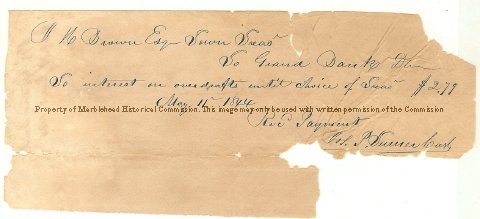 H Brown Esq Town Treasr
To Grand Bank Dr
To interest on overdrafts until choice of Treasr $2.79
May 11 1844
Property of Marblehead Historical Commission. This image may only be used with written permission of the Commission
Recd Payment
Jos. P. Turner Cash